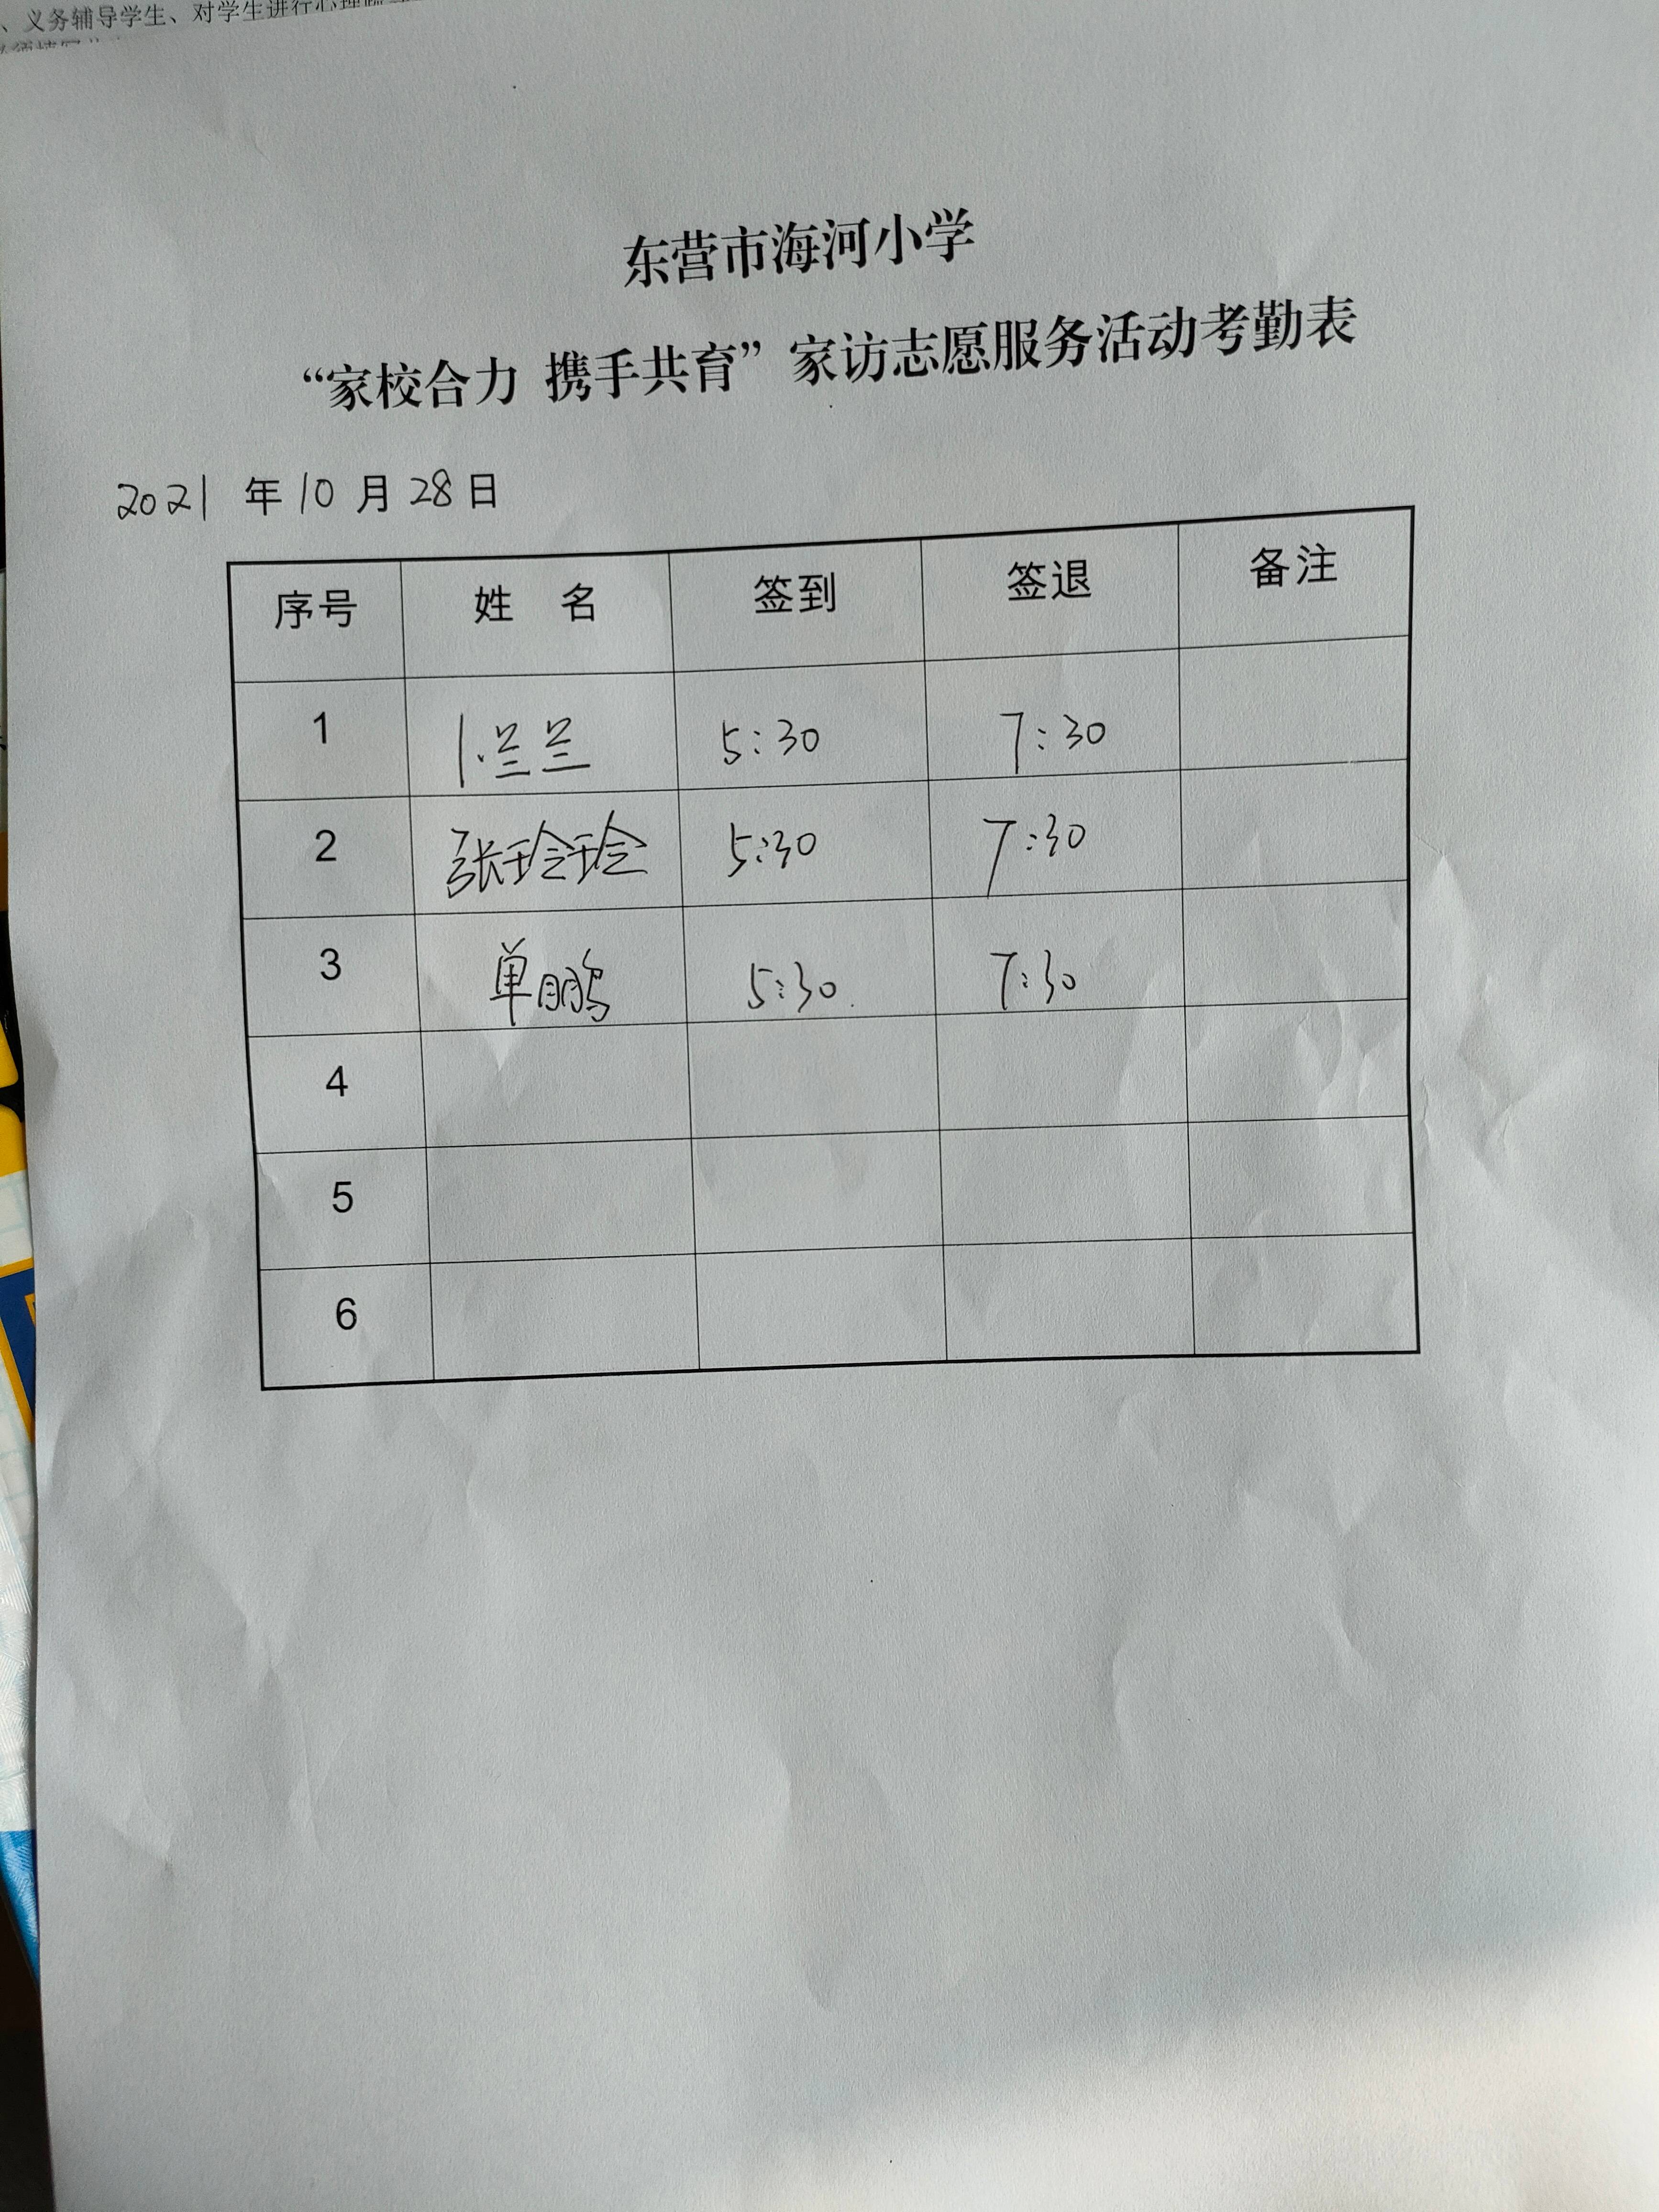 、义务辅导学生、对学生进行心理
东营市海河小学
“家校合力 携手共育”家访志愿服务活动考勤表
2021 年 10 月 28 日
序号 姓 名 签到 签退 备注
1 卜兰兰 5:30 7:30
2 张玲玲 5:30 7:30
3 单鹏 5:30 7:30
4
5
6